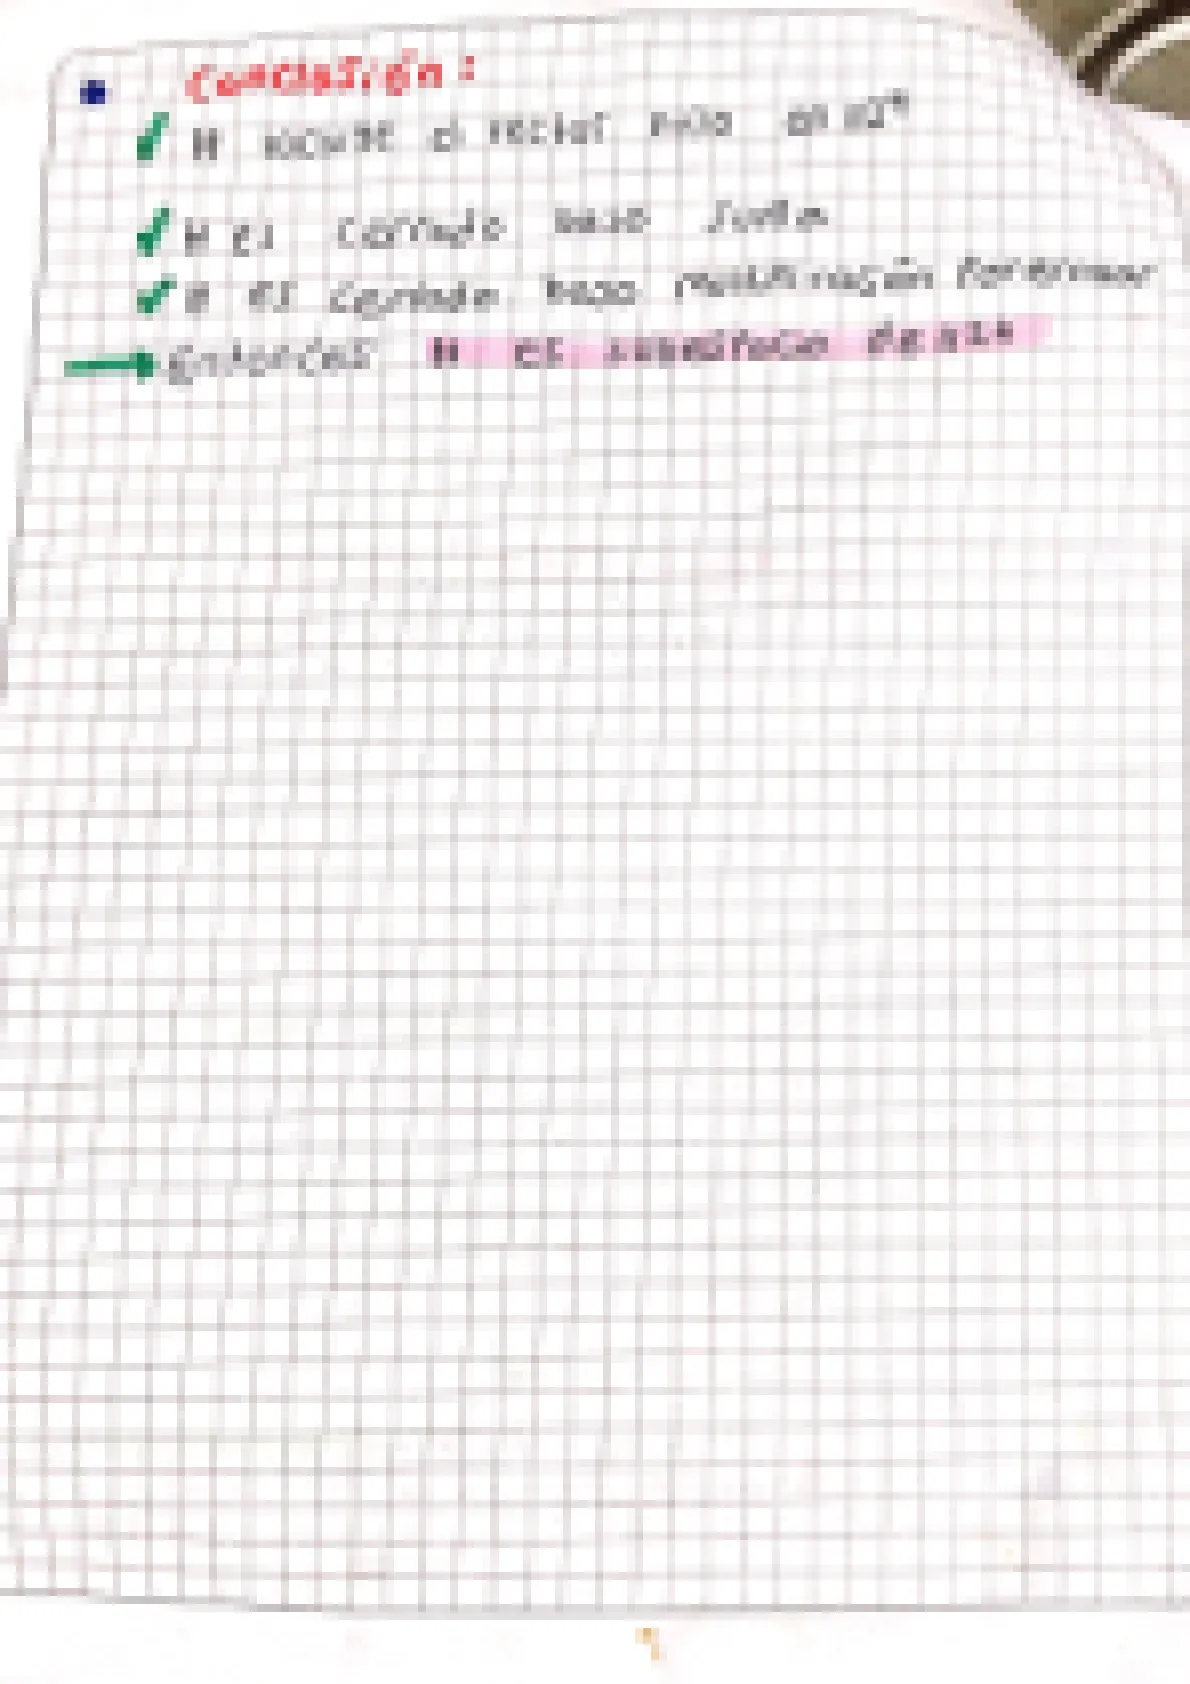 Conclusión:
H el vector nulo en
H es cerrado bajo suma
H es cerrado bajo multiplicación por escalar
Entonces H es subespacio de